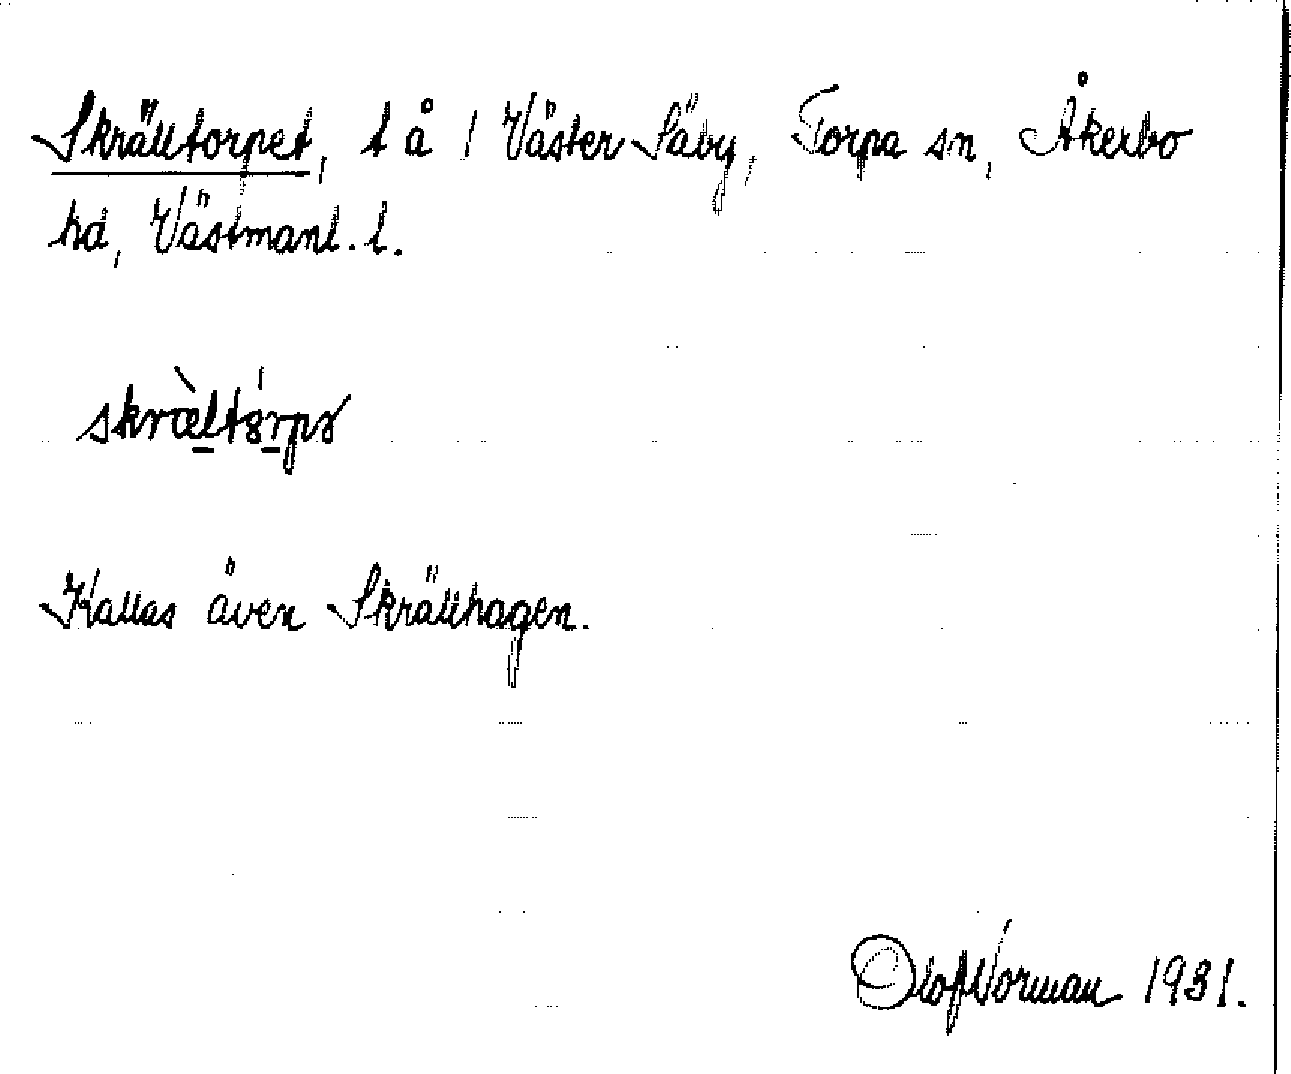 Skrälltorpet, t å 1 Väster Säby, Torpa sn, Åkerbo
hd, Västmanl. l.
Kallas även Skrällhagen.
Olof Norman 1931.